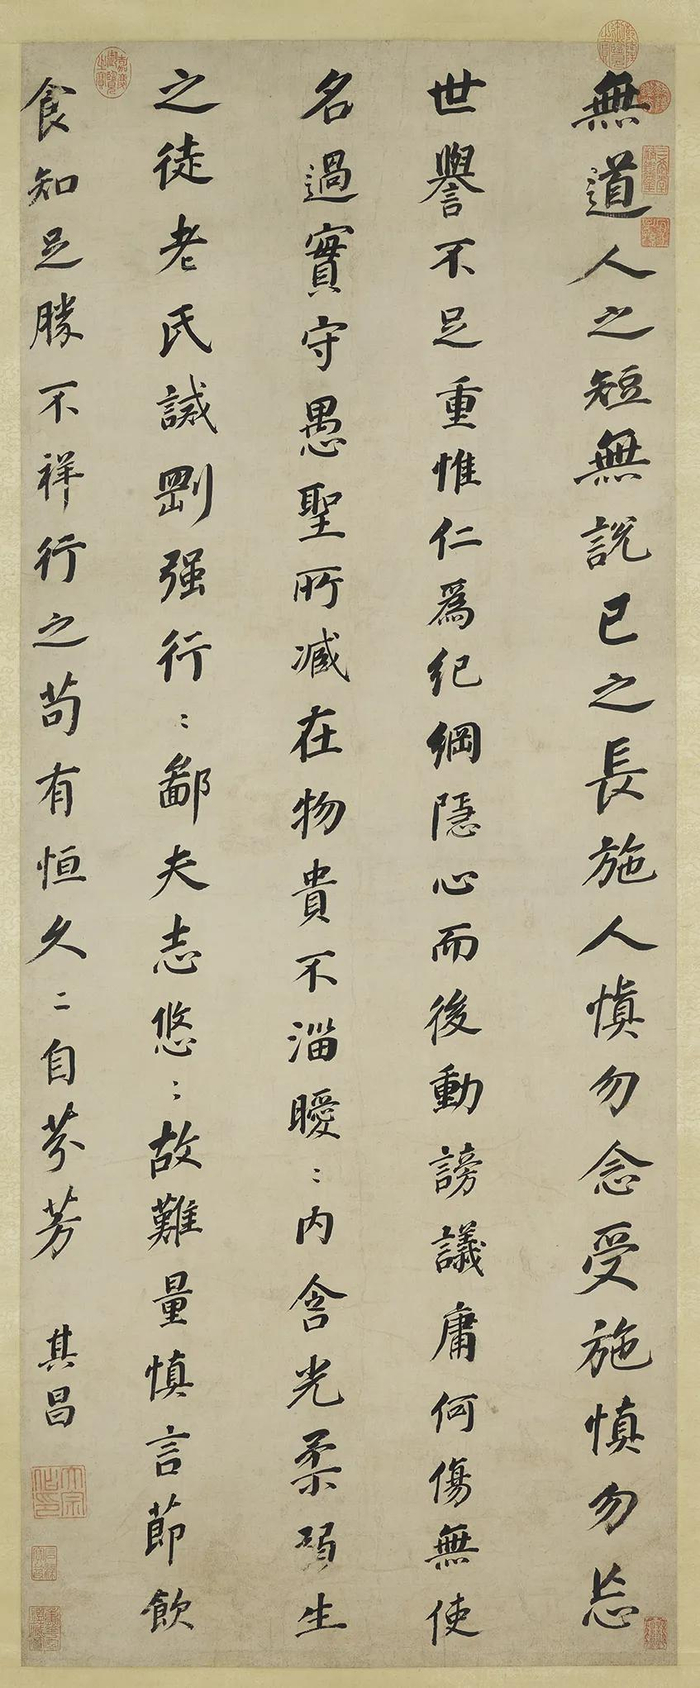 無道人之短無說己之長施人慎勿念受施慎勿忘
世譽不足重惟仁爲紀綱隱心而後動謗議庸何傷無使
名過實守愚聖所臧在物貴不淄曖〻內含光柔弱生
之徒老氏誡剛强行〻鄙夫志悠〻故難量慎言節飲
食知足勝不祥行之苟有恒久〻自芬芳
其昌